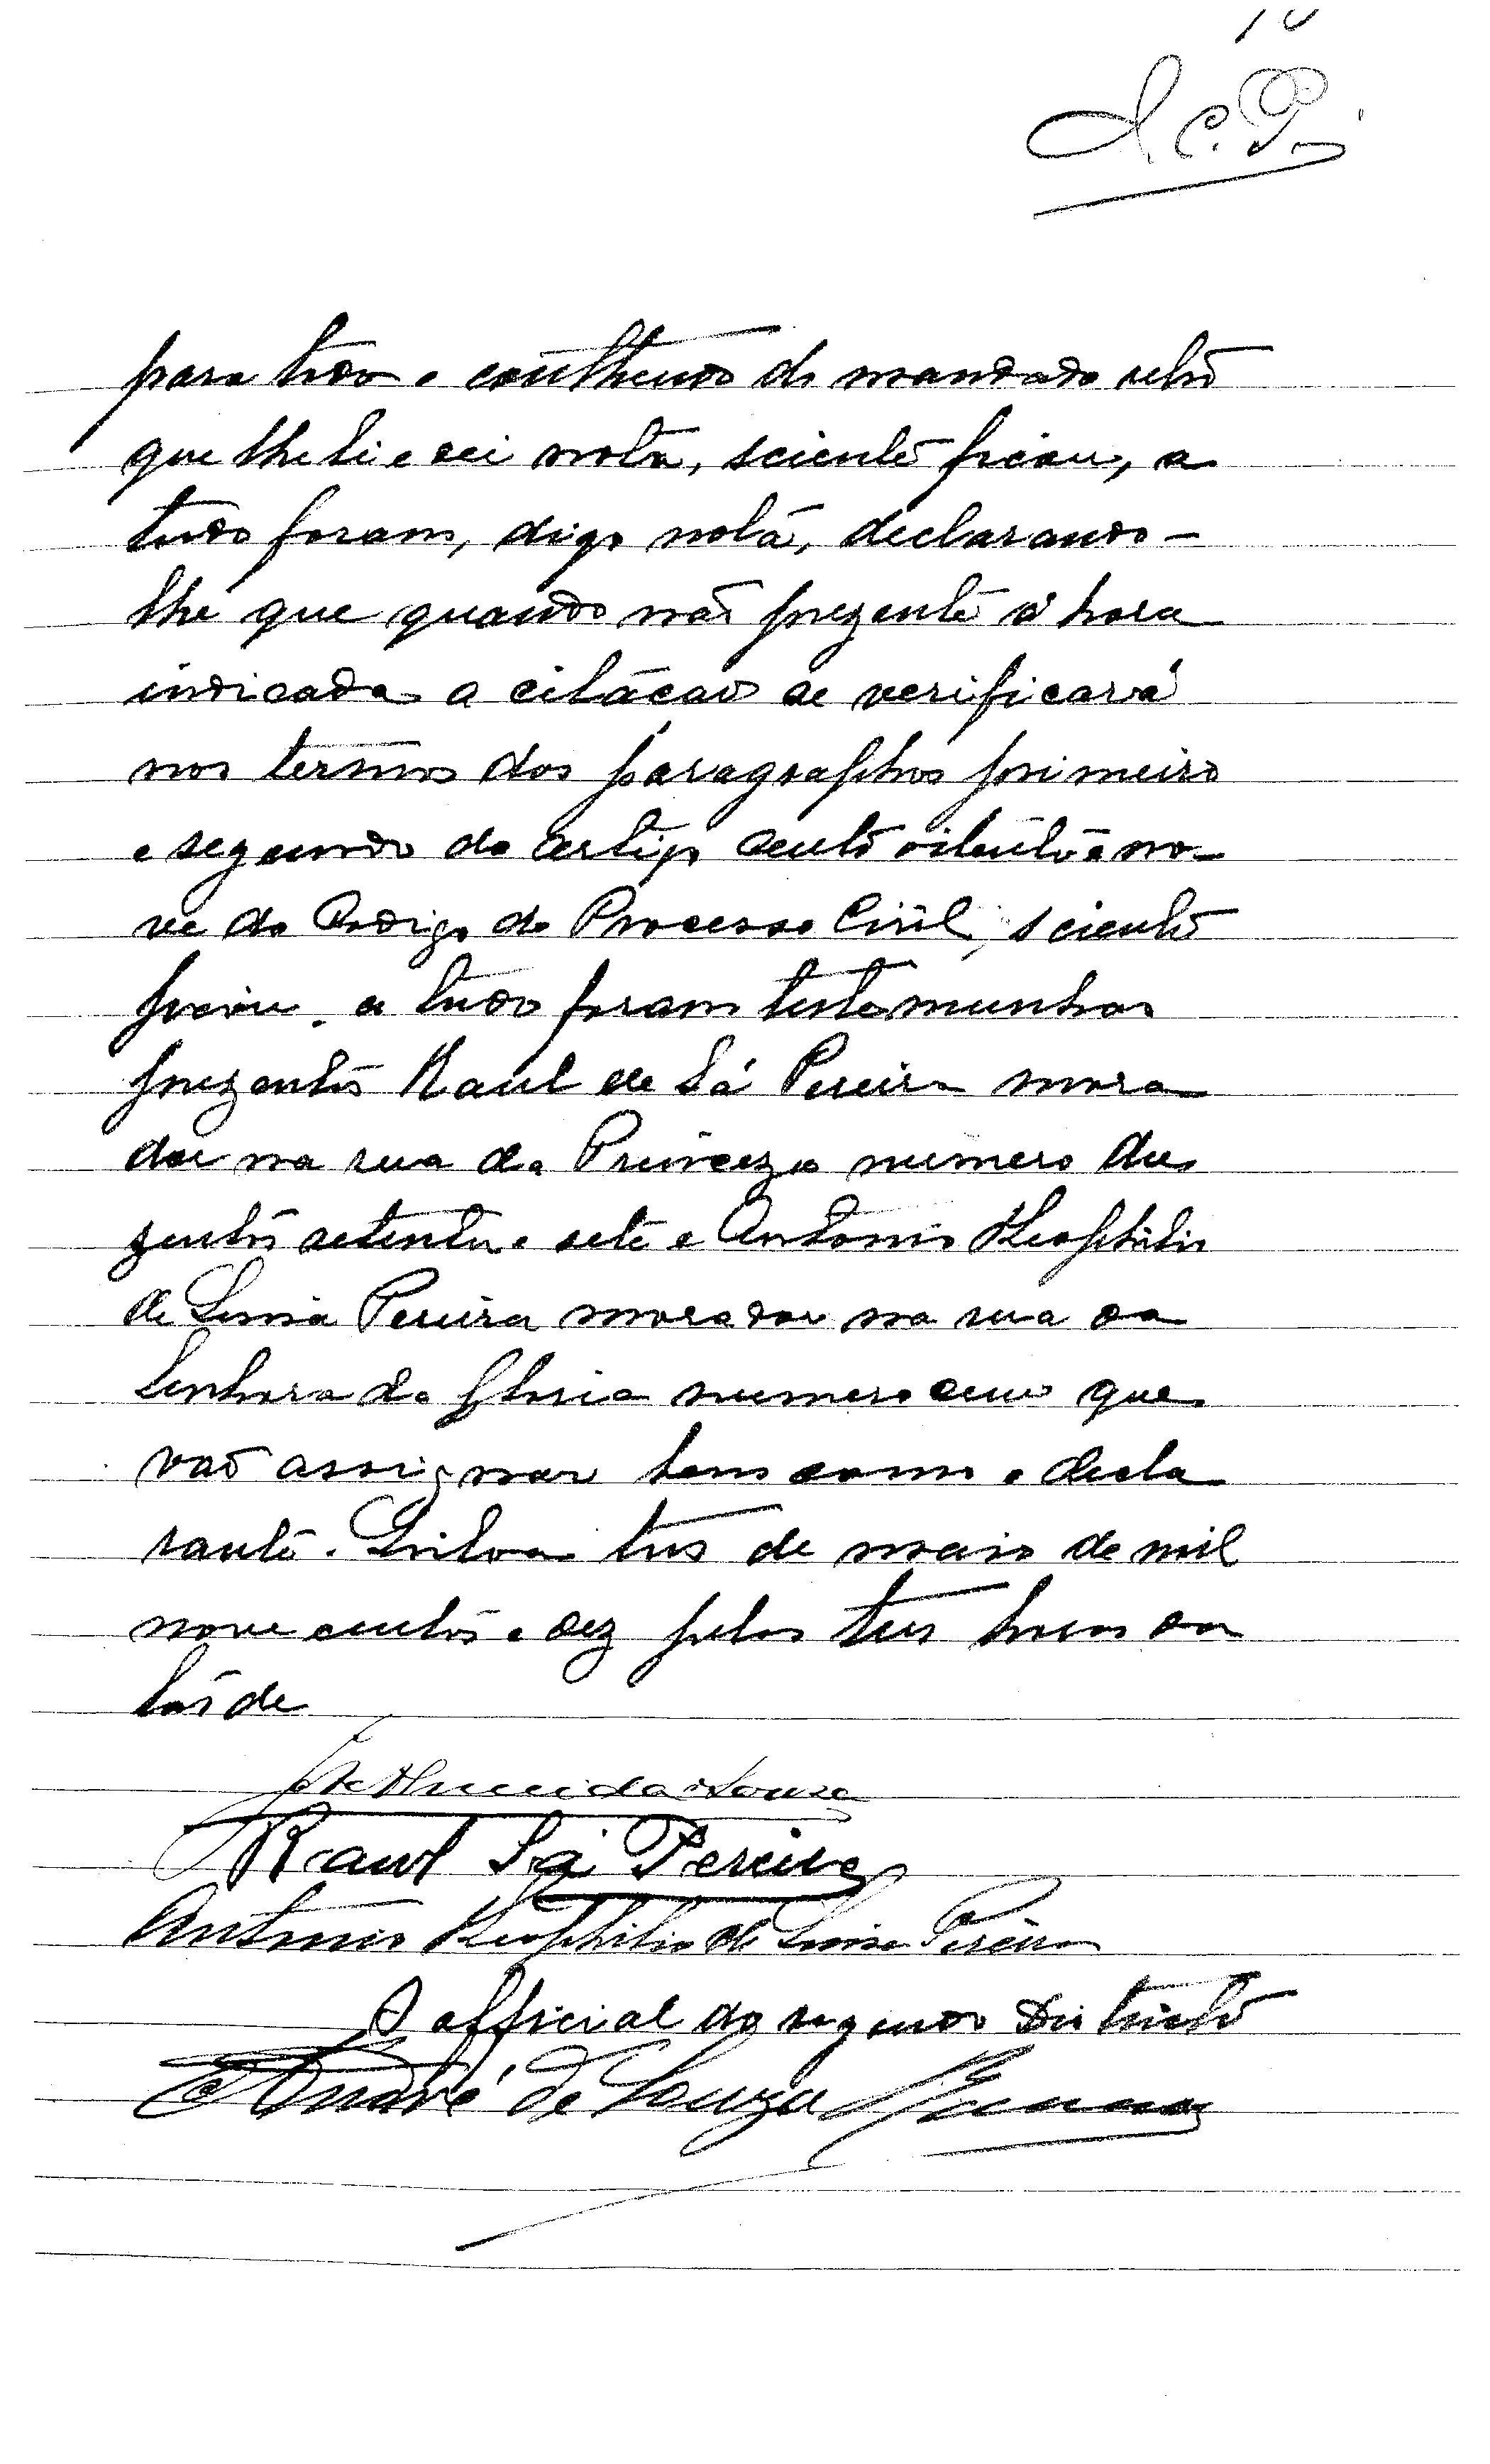 para todo o contheudo do mandado retro
que lhe li e dei nota, sciente ficou, a
tudo foram, digo nota, declarando-
lhe que quando não prezente á hora
indicada a citação se verificará
nos termos dos paragraphos primeiro
e segundo do artigo cento oitenta e no-
ve do Codigo do Processo Civil, sciente
ficou. a tudo foram testemunhas
prezentes Raul de Sá Pereira mora
dor na rua da Princeza numero du
zentos setenta e sete e Antonio Theophilo
de Lima Pereira morador na rua da
Senhora da Gloria numero cem que
vão assignar bem como o decla
rante. Lisboa tres de maio de mil
nove centos e dez pelas tres horas da
tarde
José Almeida Souza
Raul Sá Pereira
Antonio Theophilo de Lima Pereira
O official do segundo Districto
André de Souza